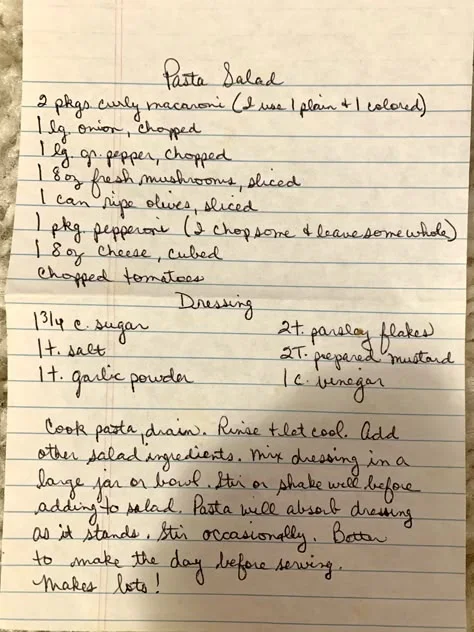 Pasta Salad
2 pkgs curly macaroni (I use 1 plain & 1 colored)
1 lg. onion, chopped
1 lg. gr. pepper, chopped
1 8oz fresh mushrooms, sliced
1 can ripe olives, sliced
1 pkg. pepperoni (I chop some & leave some whole)
1 8oz cheese, cubed
Chopped tomatoes
Dressing
1 3/4 c. sugar
1 t. salt
1 t. garlic powder
2 t. parsley flakes
2 T. prepared mustard
1 c. vinegar
Cook pasta, drain. Rinse & let cool. Add
other salad ingredients. Mix dressing in a
large jar or bowl. Stir or shake well before
adding to salad. Pasta will absorb dressing
as it stands. Stir occasionally. Better
to make the day before serving.
Makes lots!